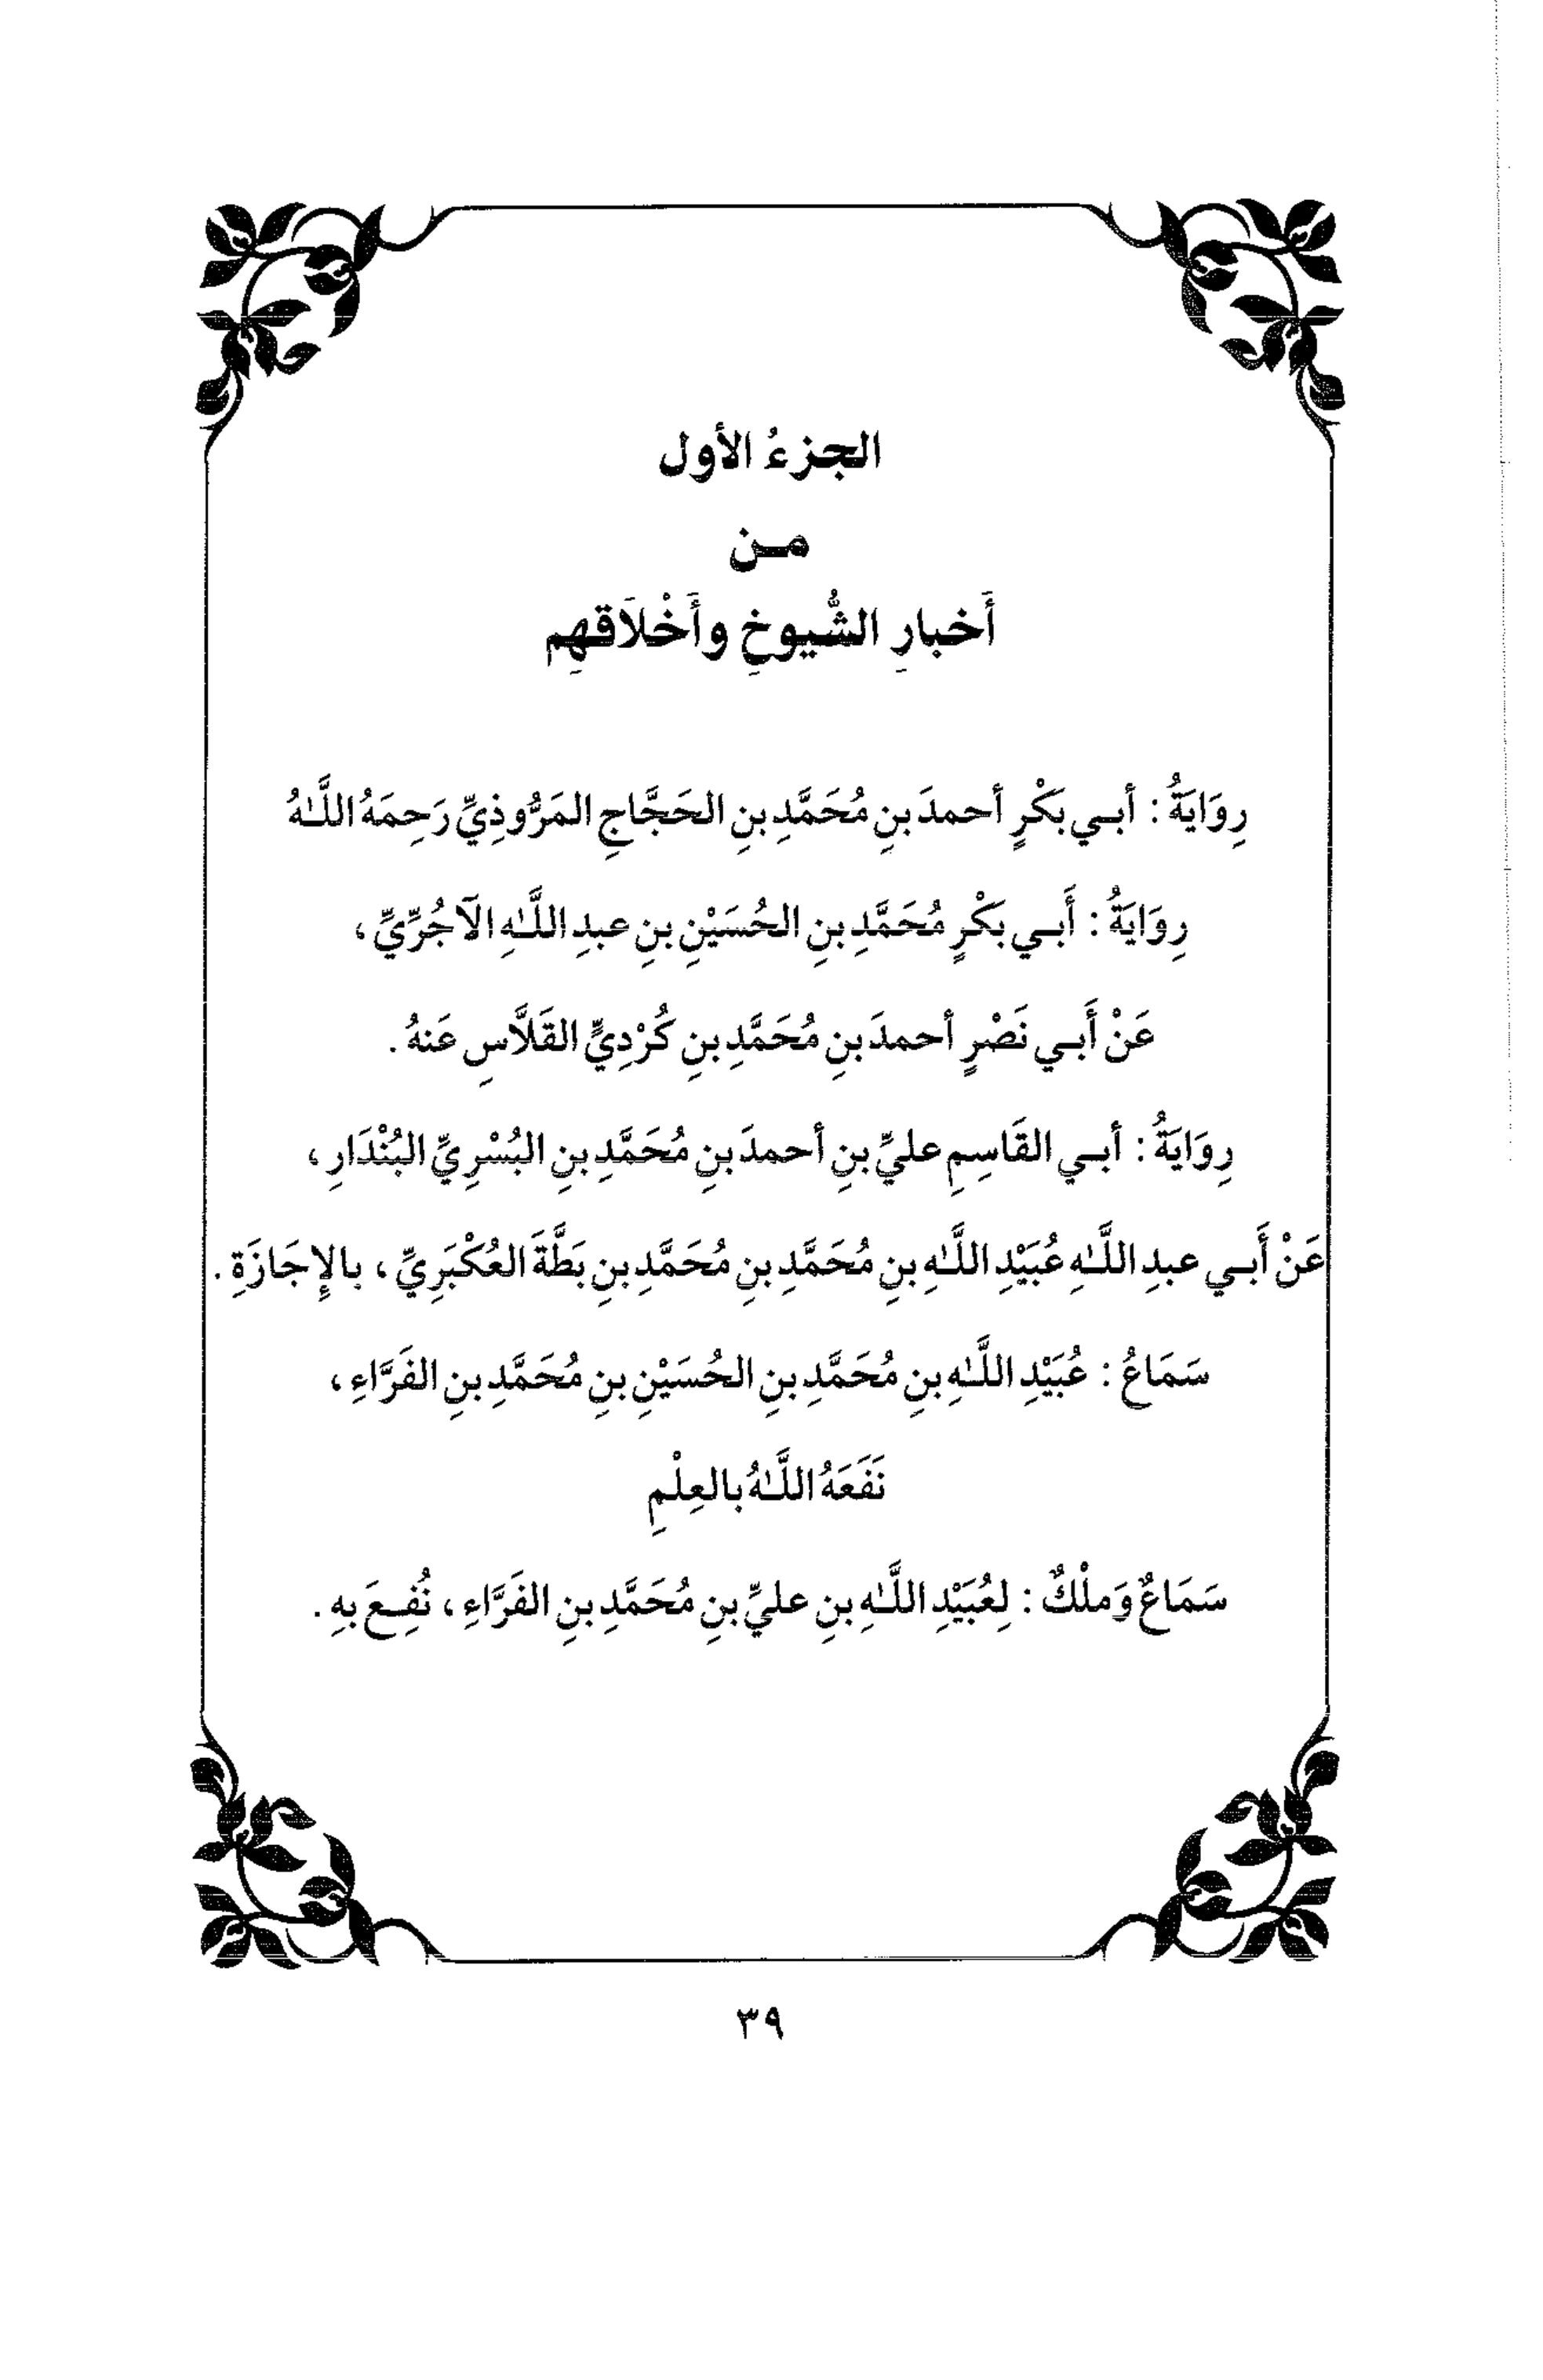 الجزءُ الأول
من
أَخبارِ الشُّيوخِ وأَخْلَاقهِم
رِوَايَةُ : أبي بَكْرٍ أحمدَ بنِ مُحَمَّدِ بنِ الحَجَّاجِ المَرُّوذِيِّ رَحِمَهُ اللَّهُ
رِوَايَةُ : أَبي بَكْرٍ مُحَمَّدِ بنِ الحُسَيْنِ بنِ عبدِ اللَّهِ الآجُرِّيِّ ،
عَنْ أَبي نَصْرٍ أحمدَ بنِ مُحَمَّدِ بنِ كُرْدِيٍّ القَلَّاسِ عَنهُ .
رِوَايَةُ : أبي القَاسِمِ عليِّ بنِ أحمدَ بنِ مُحَمَّدِ بنِ البُسْرِيِّ البُنْدَارِ ،
عَنْ أَبي عبدِ اللَّهِ عُبَيْدِ اللَّهِ بنِ مُحَمَّدِ بنِ مُحَمَّدِ بنِ بَطَّةَ العُكْبَرِيِّ ، بالإِجَازَةِ .
سَمَاعُ : عُبَيْدِ اللَّهِ بنِ مُحَمَّدِ بنِ الحُسَيْنِ بنِ مُحَمَّدِ بنِ الفَرَّاءِ ،
نَفَعَهُ اللَّهُ بالعِلْمِ
سَمَاعٌ وَملْكٌ : لِعُبَيْدِ اللَّهِ بنِ عليِّ بنِ مُحَمَّدِ بنِ الفَرَّاءِ ، نُفِعَ بهِ .
٣٩